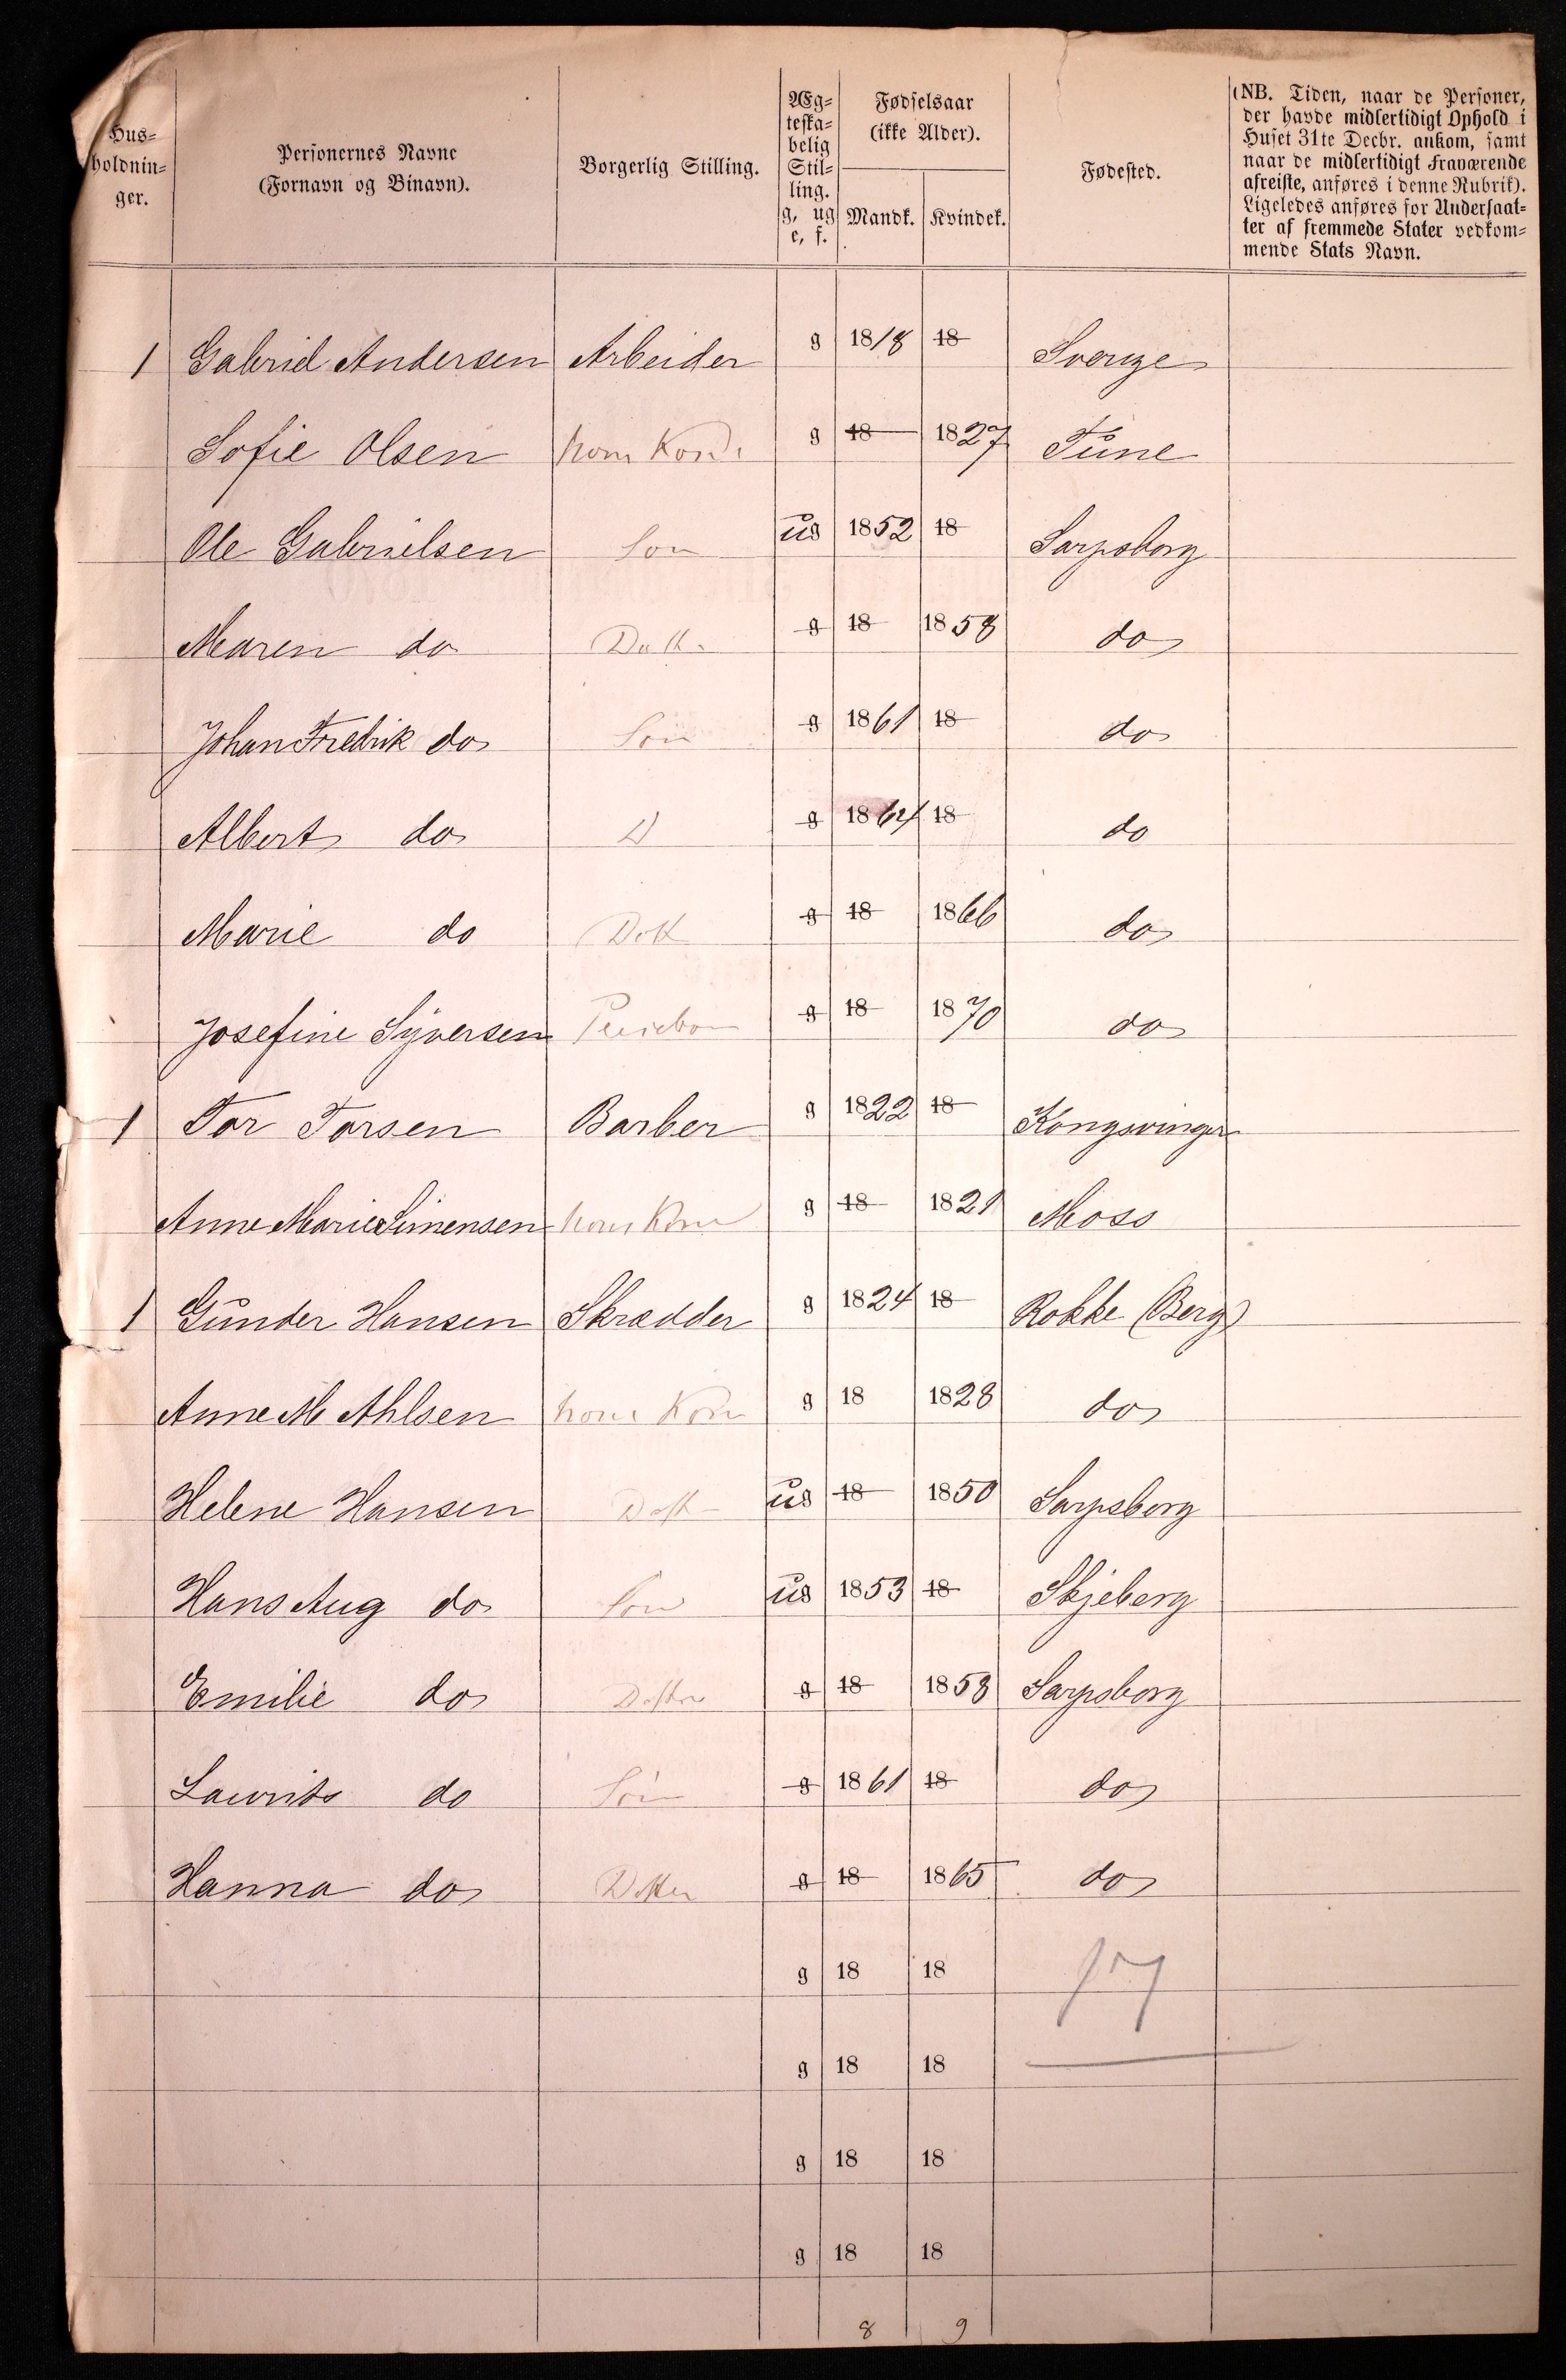 Hus-holdnin-ger. Personernes Navne (Fornavn og Binavn). Borgerlig Stilling. Ægteska-belig Stil-ling. g, ug e, f. Fødselsaar (ikke Alder). Mandk. Kvindek. Fødested. (NB. Tiden, naar de Personer, der havde midlertidigt Ophold i Huset 31te Decbr. ankom, samt naar de midlertidigt Fraværende afreiste, anføres i denne Rubrik). Ligeledes anføres for Undersaat-ter af fremmede Stater vedkom-mende Stats Navn.
1 Gabriel Andersen Arbeider g 1818 18 Sverige
Sofie Olsen hans Kone g 18 1827 Tune
Ole Gabrielsen Søn ug 1852 18 Sarpsborg
Maren do Datt. g 18 1858 do
Johan Fredrik do Søn g 1861 18 do
Albert do D g 1864 18 do
Marie do Datt g 18 1866 do
Josefine Syversen g 18 1870 do
1 Tor Torsen Barber g 1822 18 Kongsvinger
Anne Marie Simensen hans Kone g 18 1821 Moss
1 Gunder Hansen Skrædder g 1824 18 Rokke (Berg)
Anne M Ahlsen hans Kone g 18 1828 do
Helene Hansen Datt ug 18 1850 Sarpsborg
Hans Aug do Søn ug 1853 18 Skjeberg
Emilie do Datter g 18 1858 Sarpsborg
Laurits do Søn g 1861 18 do
Hanna do Datter g 18 1865 do
g 18 18 17
g 18 18
g 18 18
g 18 18
8 9